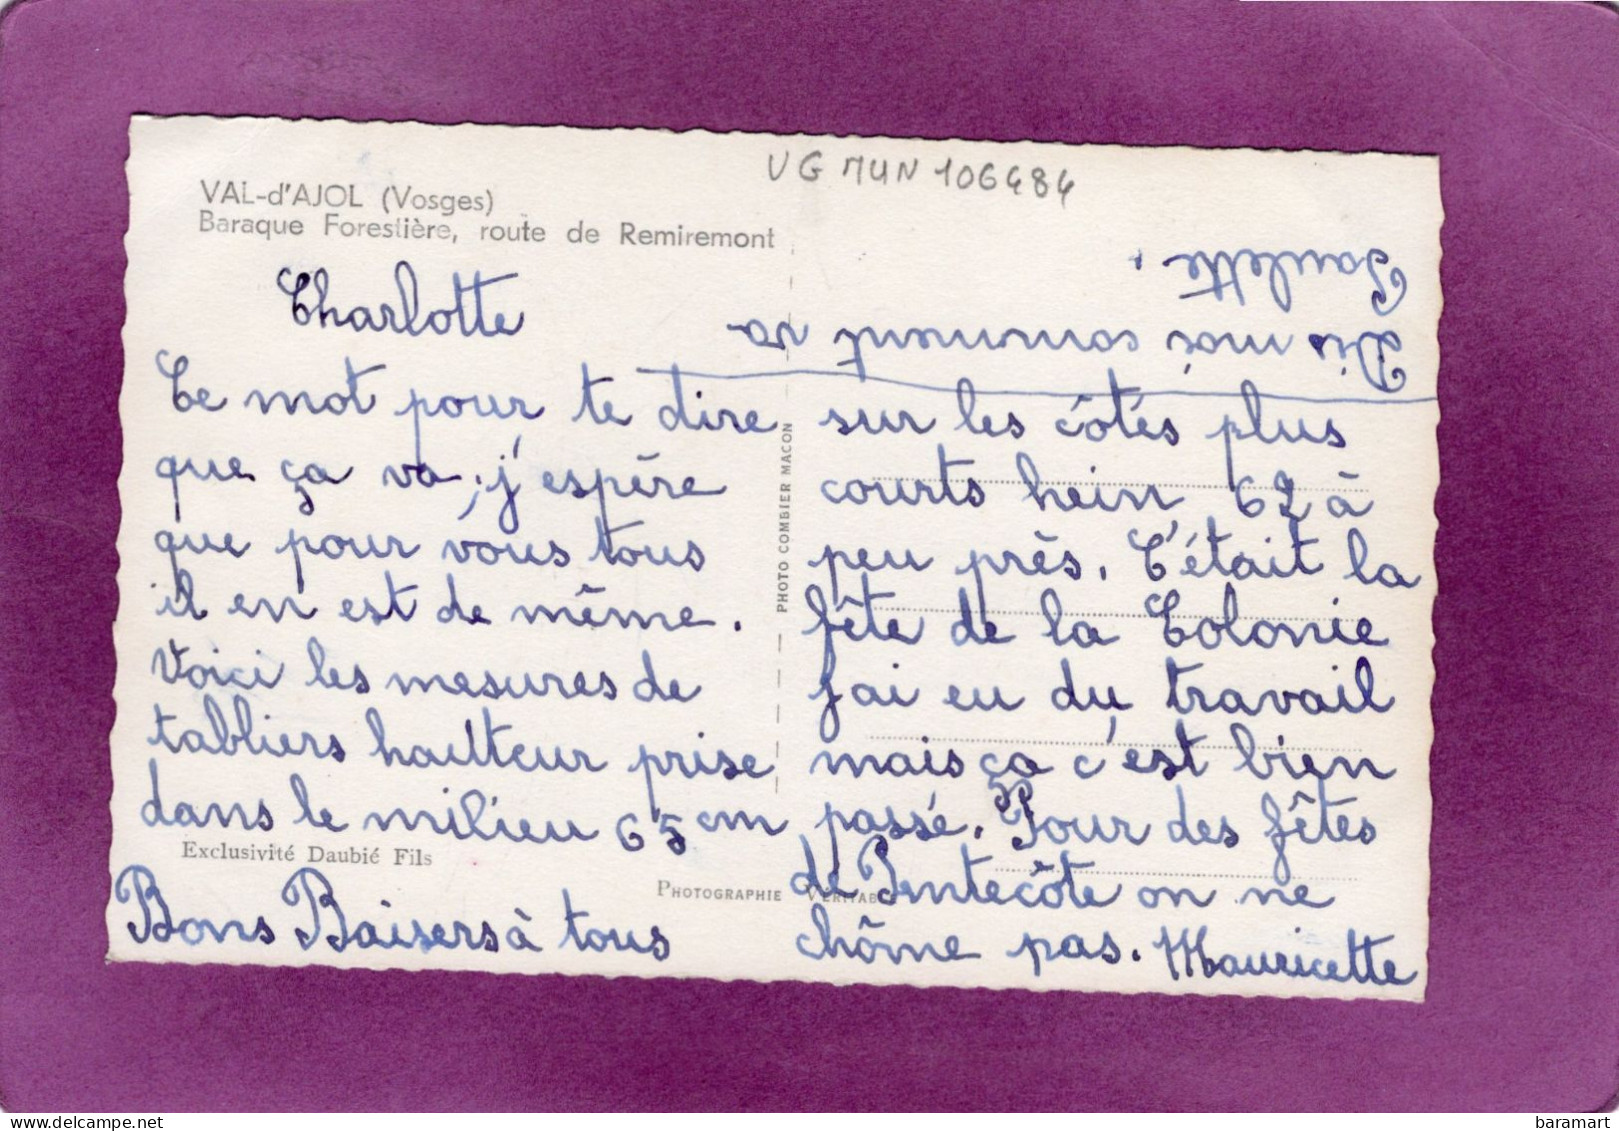 VAL-d'AJOL (Vosges)
Baraque Forestière, route de Remiremont
UG MUN 106484
Charlotte
Ce mot pour te dire
que ça va, j'espère
que pour vous tous
il en est de même.
Voici les mesures de
tabliers hauteur prise
dans le milieu 65 cm
Exclusivité Daubié Fils
PHOTOGRAPHIE VÉRITABLE
PHOTO COMBIER MACON
sur les côtés plus
courts hein 62 à
peu près. C'était la
fête de la Colonie
j'ai eu du travail
mais ça c'est bien
passé. Pour des fêtes
de Pentecôte on ne
chôme pas. Mauricette
Bons Baisers à tous
Dis moi comment va
Paulette.
baramart